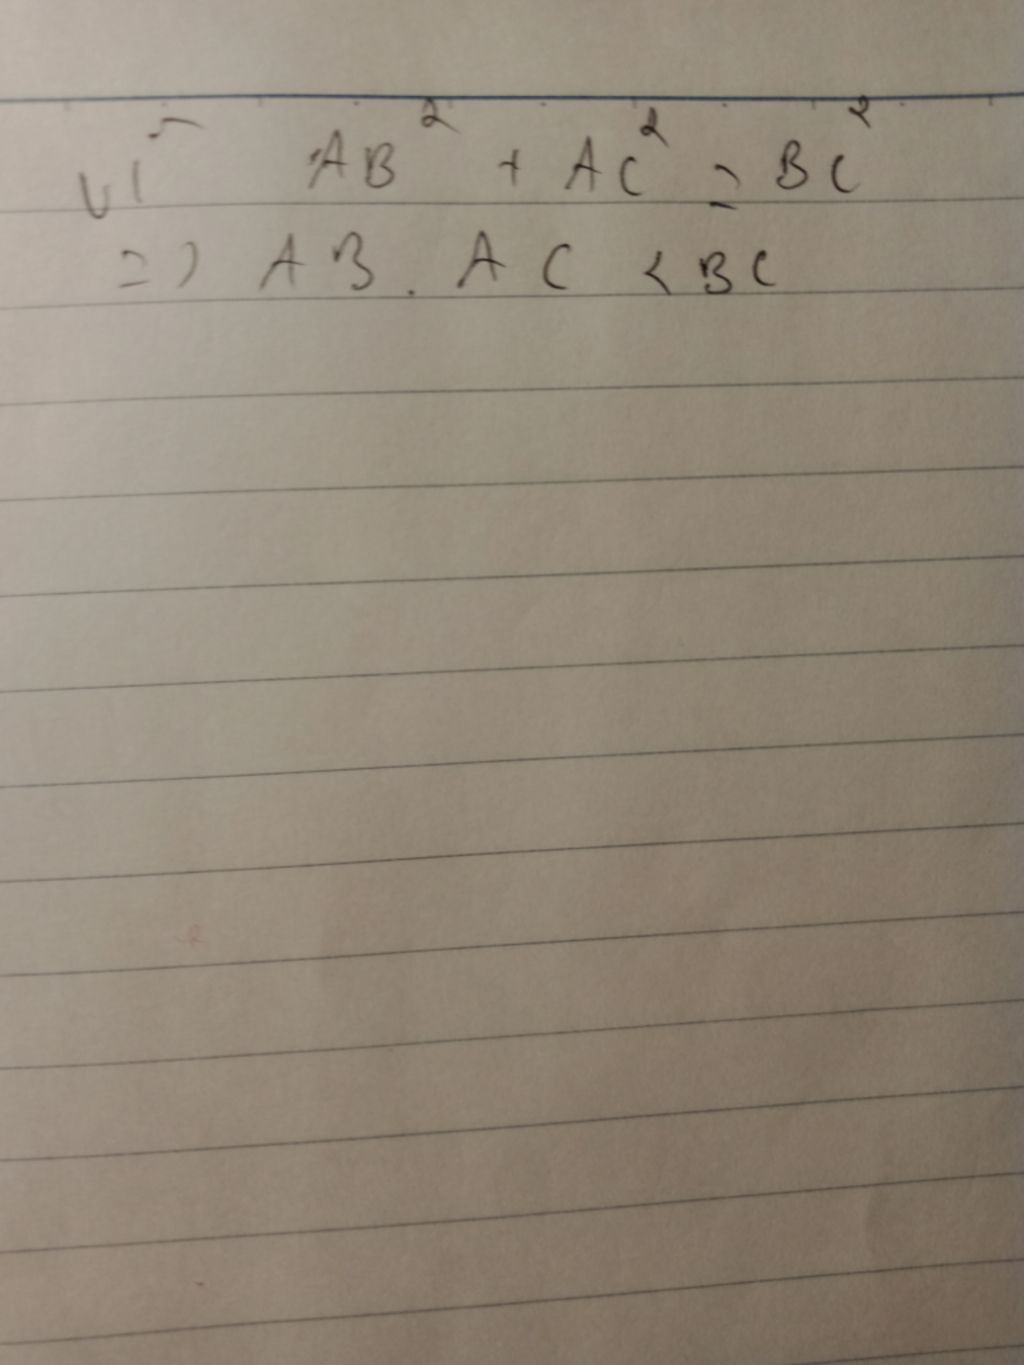 vì AB² + AC² = BC²
=> AB . AC < BC